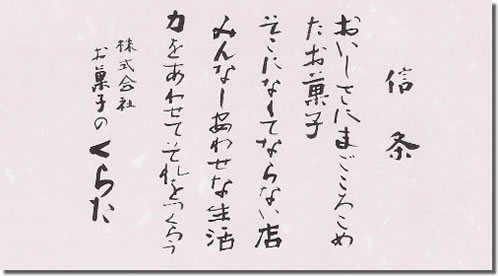 信条
おいしさにまごころこめ
たお菓子
そこになくてならない店
みんなしあわせな生活
力をあわせてそれをつくろう
株式会社
お菓子のくらた